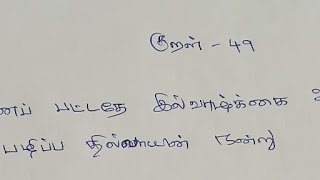 குறள் - 49
னப் பட்டதே இல்வாழ்க்கை
பழிப்ப தில்லாயின் நன்று